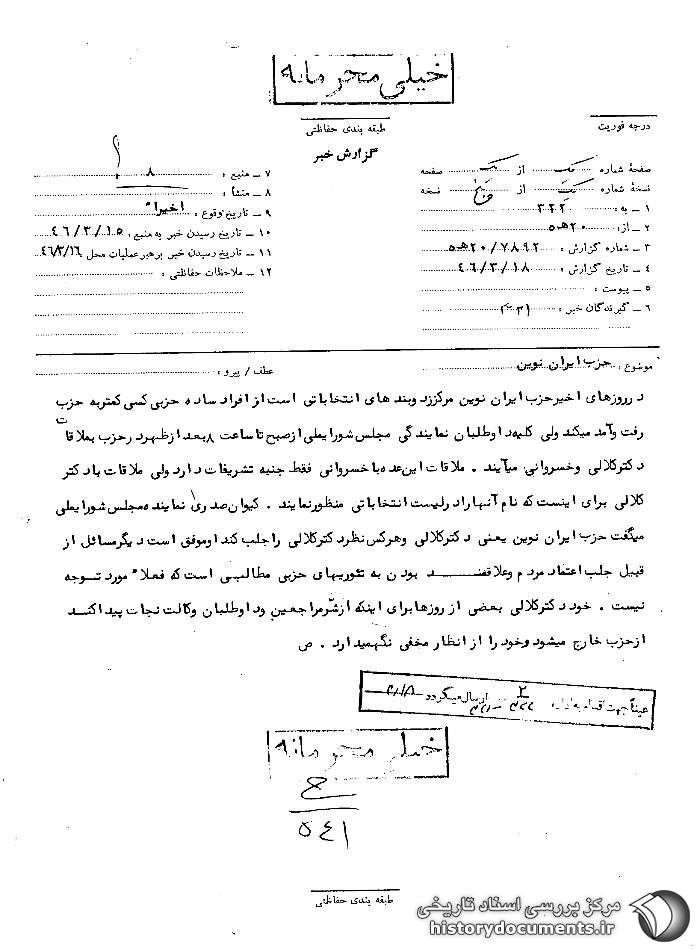 خیلی محرمانه
درجه فوریت
طبقه بندی حفاظتی
گزارش خبر
صفحهٔ شماره یک از یک صفحه
نسخهٔ شماره یک از پنج نسخه
۱ ـ به : ۳۲۲
۲ ـ از : ۲۰ ه‍ ۵
۳ ـ شماره گزارش : ۲۰/۷۸۹۲ ه‍ ۵
۴ ـ تاریخ گزارش : ۴۶/۳/۱۸
۵ ـ پیوست :
۶ ـ گیرندگان خبر :
۷ ـ منبع : ۸
۸ ـ منشأ :
۹ ـ تاریخ وقوع : اخیراً
۱۰ ـ تاریخ رسیدن خبر به منبع : ۴۶/۳/۱۵
۱۱ ـ تاریخ رسیدن خبر برهبر عملیات محل ۴۶/۳/۱۶
۱۲ ـ ملاحظات حفاظتی :
موضوع : حزب ایران نوین
عطف / پیرو :
در روزهای اخیر حزب ایران نوین مرکز زد وبند های انتخاباتی است از افراد ساده حزبی کسی کمتر به حزب
رفت وآمد میکند ولی کلیه داوطلبان نمایندگی مجلس شورایملی از صبح تا ساعت ۸ بعد از ظهر در حزب بملاقات
دکتر کلالی وخسروانی میآیند . ملاقات این عده با خسروانی فقط جنبه تشریفات دارد ولی ملاقات با دکتر
کلالی برای اینست که نام آنها را در لیست انتخاباتی منظور نمایند . کیوان صدری نماینده مجلس شورایملی
میگفت حزب ایران نوین یعنی دکتر کلالی وهرکس نظر دکتر کلالی را جلب کند او موفق است دیگر مسائل از
قبیل جلب اعتماد مردم وعلاقمند بودن به تئوریهای حزبی مطالبی است که فعلاً مورد توجه
نیست . خود دکتر کلالی بعضی از روزها برای اینکه از شر مراجعین وداوطلبان وکالت نجات پیدا کند
از حزب خارج میشود وخود را از انظار مخفی نگهمیدارد . ص
عیناً جهت اقدام به اداره ارسال میگردد
خیلی محرمانه
ح
۵۴۱
طبقه بندی حفاظتی
مرکز بررسی اسناد تاریخی
historydocuments.ir